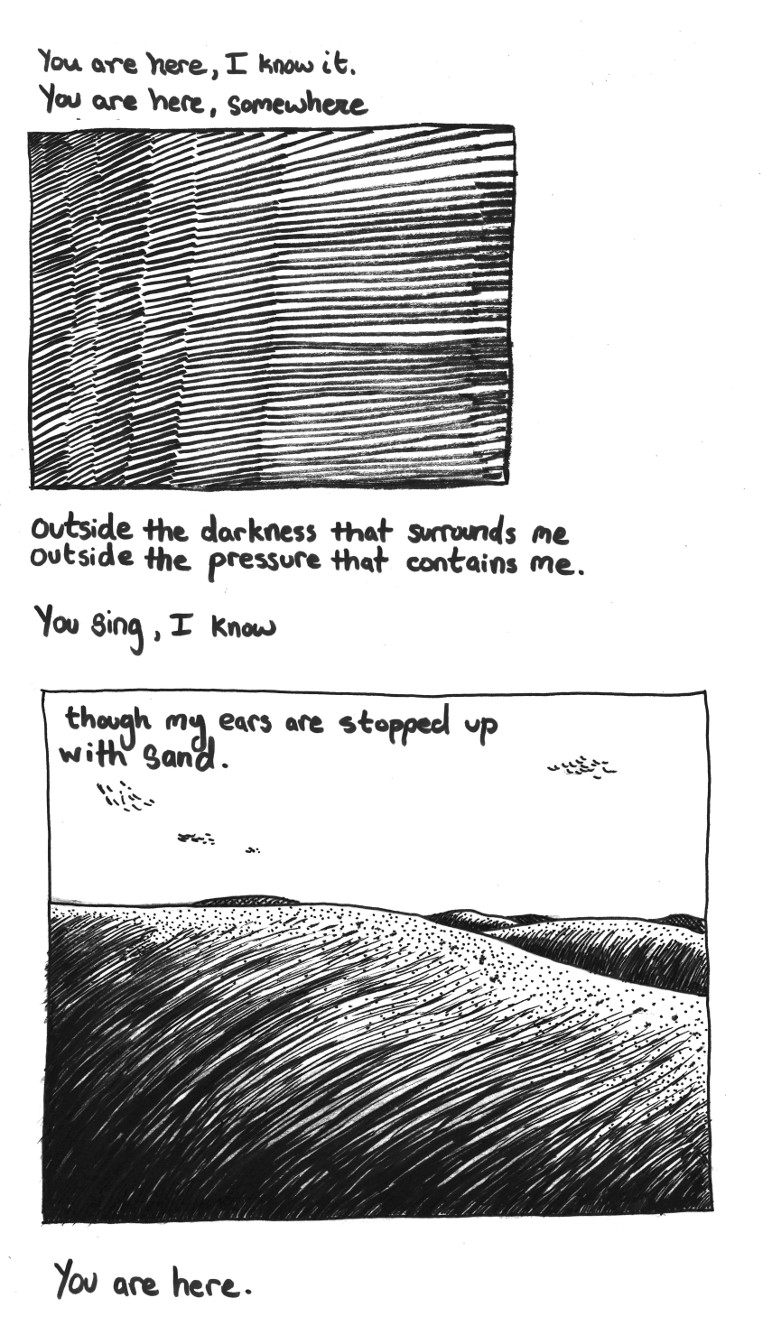 You are here, I know it.
You are here, somewhere
outside the darkness that surrounds me
outside the pressure that contains me.
You sing, I know
though my ears are stopped up
with sand.
You are here.